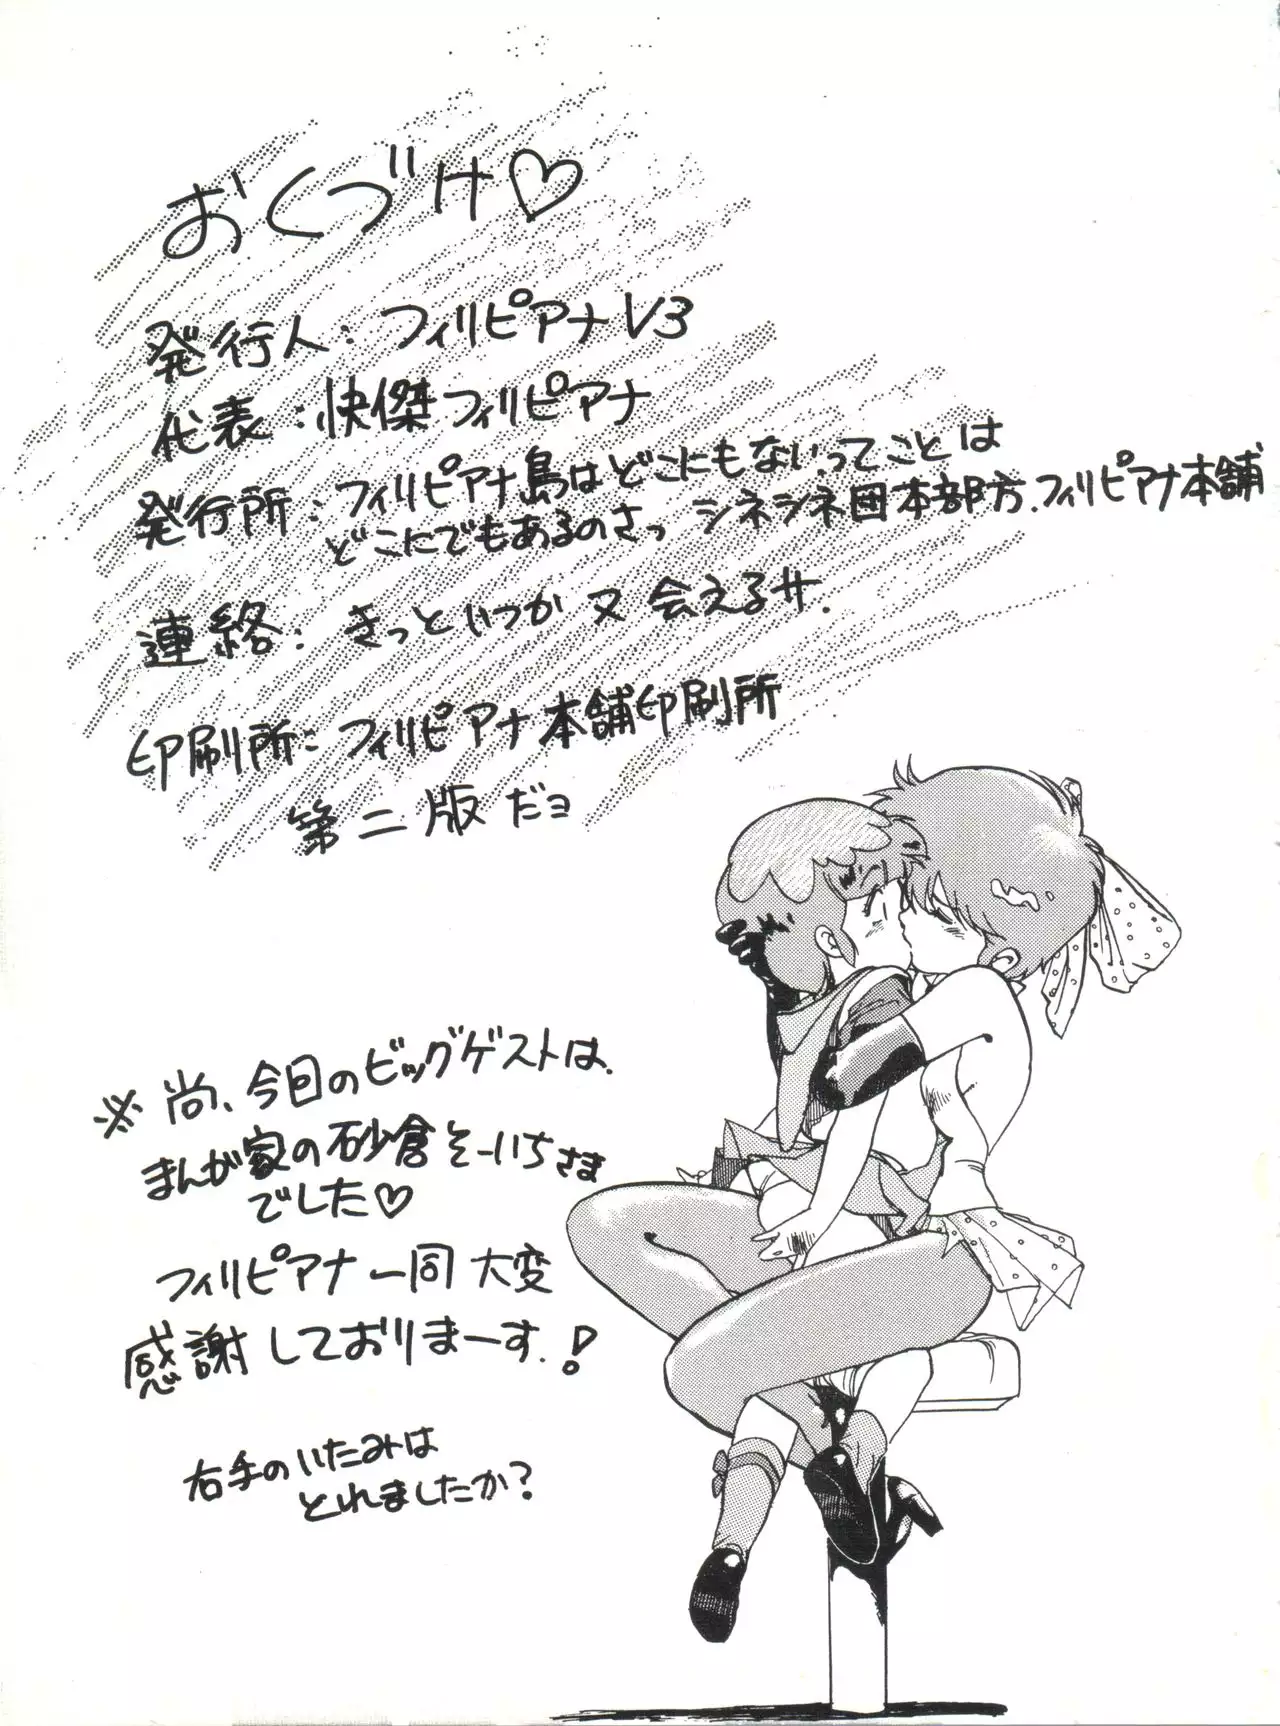 おくづけ♡
発行人：フィリピアナV3
代表：快傑フィリピアナ
発行所：フィリピアナ島はどこにもないってことは
どこにでもあるのさっ シネシネ団本部方.フィリピアナ本舗
連絡：きっといつか又会えるサ.
印刷所：フィリピアナ本舗印刷所
第二版だヨ
※尚、今回のビッグゲストは、
まんが家の砂倉そーいちさま
でした♡
フィリピアナ一同大変
感謝しておりまーす.！
右手のいたみは
とれましたか？